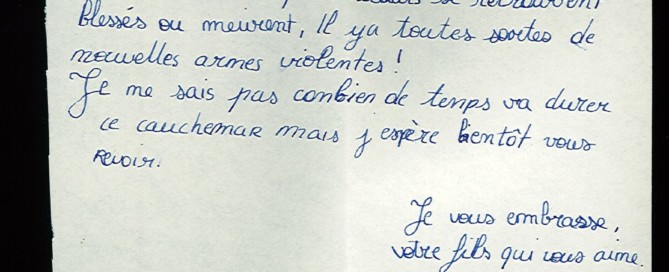 se retrouvent
blessés ou meurent, Il ya toutes sortes de
nouvelles armes violentes !
Je ne sais pas conbien de temps va durer
ce cauchemar mais j espère bientôt vous
revoir.
Je vous embrasse,
votre fils qui vous aime.